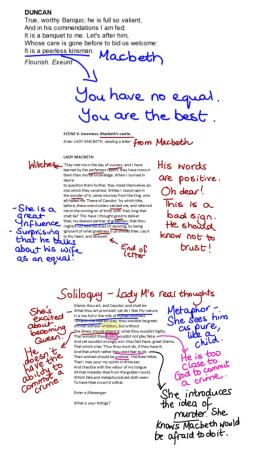 DUNCAN
True, worthy Banquo; he is full so valiant,
And in his commendations I am fed;
It is a banquet to me. Let's after him,
Whose care is gone before to bid us welcome:
It is a peerless kinsman.
Flourish. Exeunt
Macbeth
You have no equal.
You are the best.
SCENE V. Inverness. Macbeth's castle.
Enter LADY MACBETH, reading a letter
from Macbeth
LADY MACBETH
Witches
'They met me in the day of success: and I have
learned by the perfectest report, they have more in
them than mortal knowledge. When I burned in
desire
to question them further, they made themselves air,
into which they vanished. Whiles I stood rapt in
the wonder of it, came missives from the king, who
all-hailed me 'Thane of Cawdor;' by which title,
before, these weird sisters saluted me, and referred
me to the coming on of time, with 'Hail, king that
shalt be!' This have I thought good to deliver
thee, my dearest partner of greatness, that thou
mightst not lose the dues of rejoicing, by being
ignorant of what greatness is promised thee. Lay it
to thy heart, and farewell.'
His words
are positive.
Oh dear!
This is a
bad sign.
He should
know not to
trust!
- She is a
great
influence
- Surprising
that he talks
about his wife
as an equal!
End of
letter
Soliloquy - Lady M's real thoughts
Glamis thou art, and Cawdor; and shalt be
What thou art promised: yet do I fear thy nature;
It is too full o' the milk of human kindness
To catch the nearest way: thou wouldst be great;
Art not without ambition, but without
The illness should attend it: what thou wouldst highly,
That wouldst thou holily; wouldst not play false,
And yet wouldst wrongly win: thou'ldst have, great Glamis,
That which cries 'Thus thou must do, if thou have it;
And that which rather thou dost fear to do
Than wishest should be undone.' Hie thee hither,
That I may pour my spirits in thine ear;
And chastise with the valour of my tongue
All that impedes thee from the golden round,
Which fate and metaphysical aid doth seem
To have thee crown'd withal.
Enter a Messenger
What is your tidings?
She's
excited
about
becoming
Queen.
He
doesn't
have the
ability to
commit a
crime.
Metaphor -
She sees him
as pure,
like a
child.
He is too
close to
God to commit
a crime.
She introduces
the idea of
murder. She
knows Macbeth would
be afraid to do it.